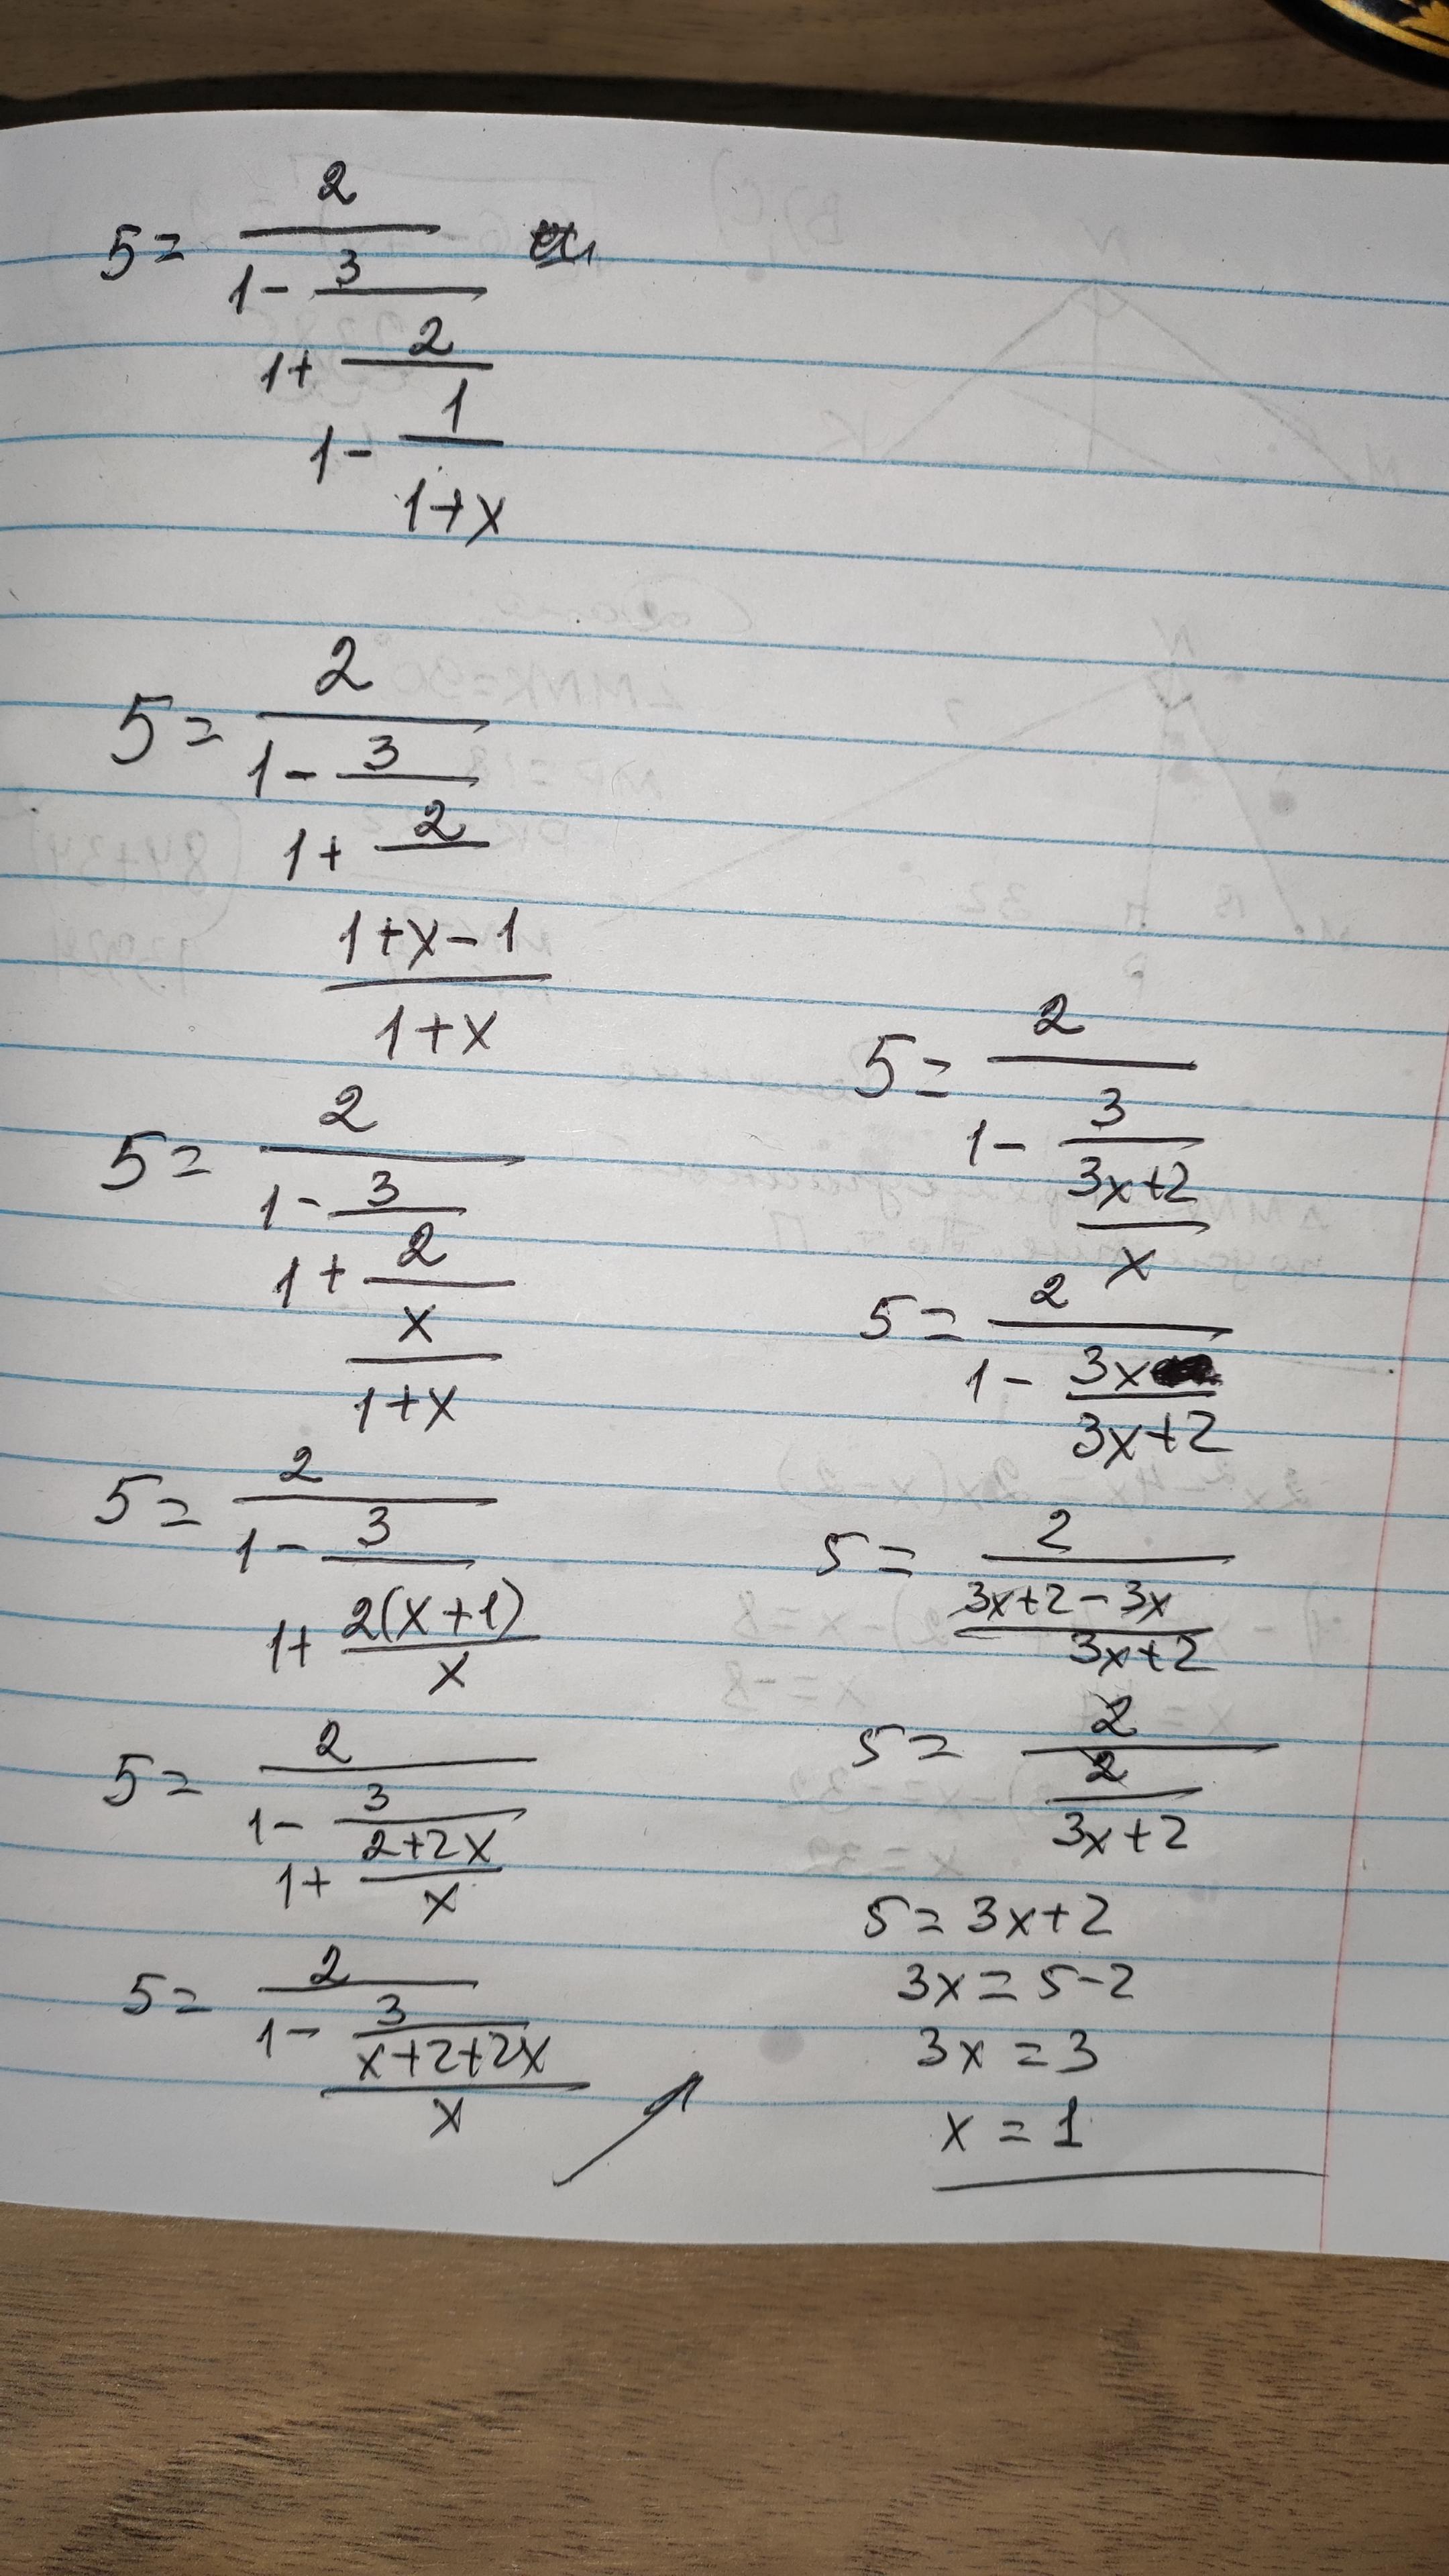 5 = 2
1 - 3
1 + 2
1 - 1
1 + x
5 = 2
1 - 3
1 + 2
1 + x - 1
1 + x
5 = 2
1 - 3
1 + 2
x
1 + x
5 = 2
1 - 3
1 + 2(x + 1)
x
5 = 2
1 - 3
2 + 2x
1 +
x
5 = 2
1 - 3
x + 2 + 2x
x
5 = 2
1 - 3
3x + 2
x
5 = 2
1 - 3x
3x + 2
5 = 2
3x + 2 - 3x
3x + 2
5 = 2
2
3x + 2
5 = 3x + 2
3x = 5 - 2
3x = 3
x = 1